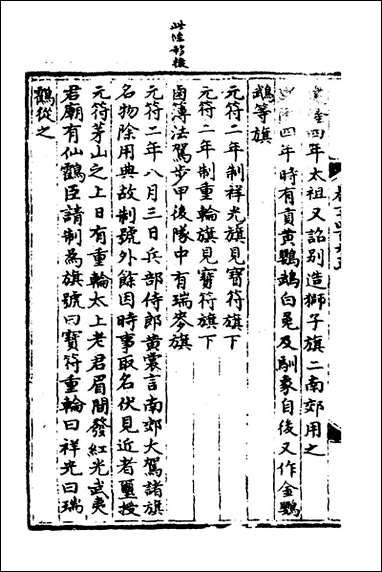 四年太祖又詔別造獅子旗二南郊用之
四年時有貢黃鸚鵡白兔及馴象自後又作金鸚
鵡等旗
元符二年制祥光旗見寶符旗下
元符二年制重輪旗見寶符旗下
鹵簿法駕步甲後隊中有瑞麥旗
元符二年八月三日兵部侍郎黃裳言南郊大駕諸旗
名物除用典故制號外餘因時事取名伏見近者璽授
元符茅山之上日有重輪太上老君眉間發紅光武夷
君廟有仙鶴臣請制為旗號曰寶符重輪曰祥光曰瑞
鶴從之